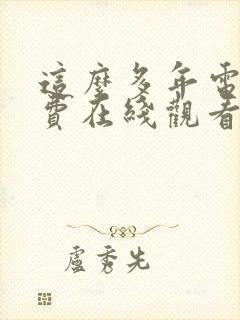 這麼多年電
費在綫觀看
盧秀先